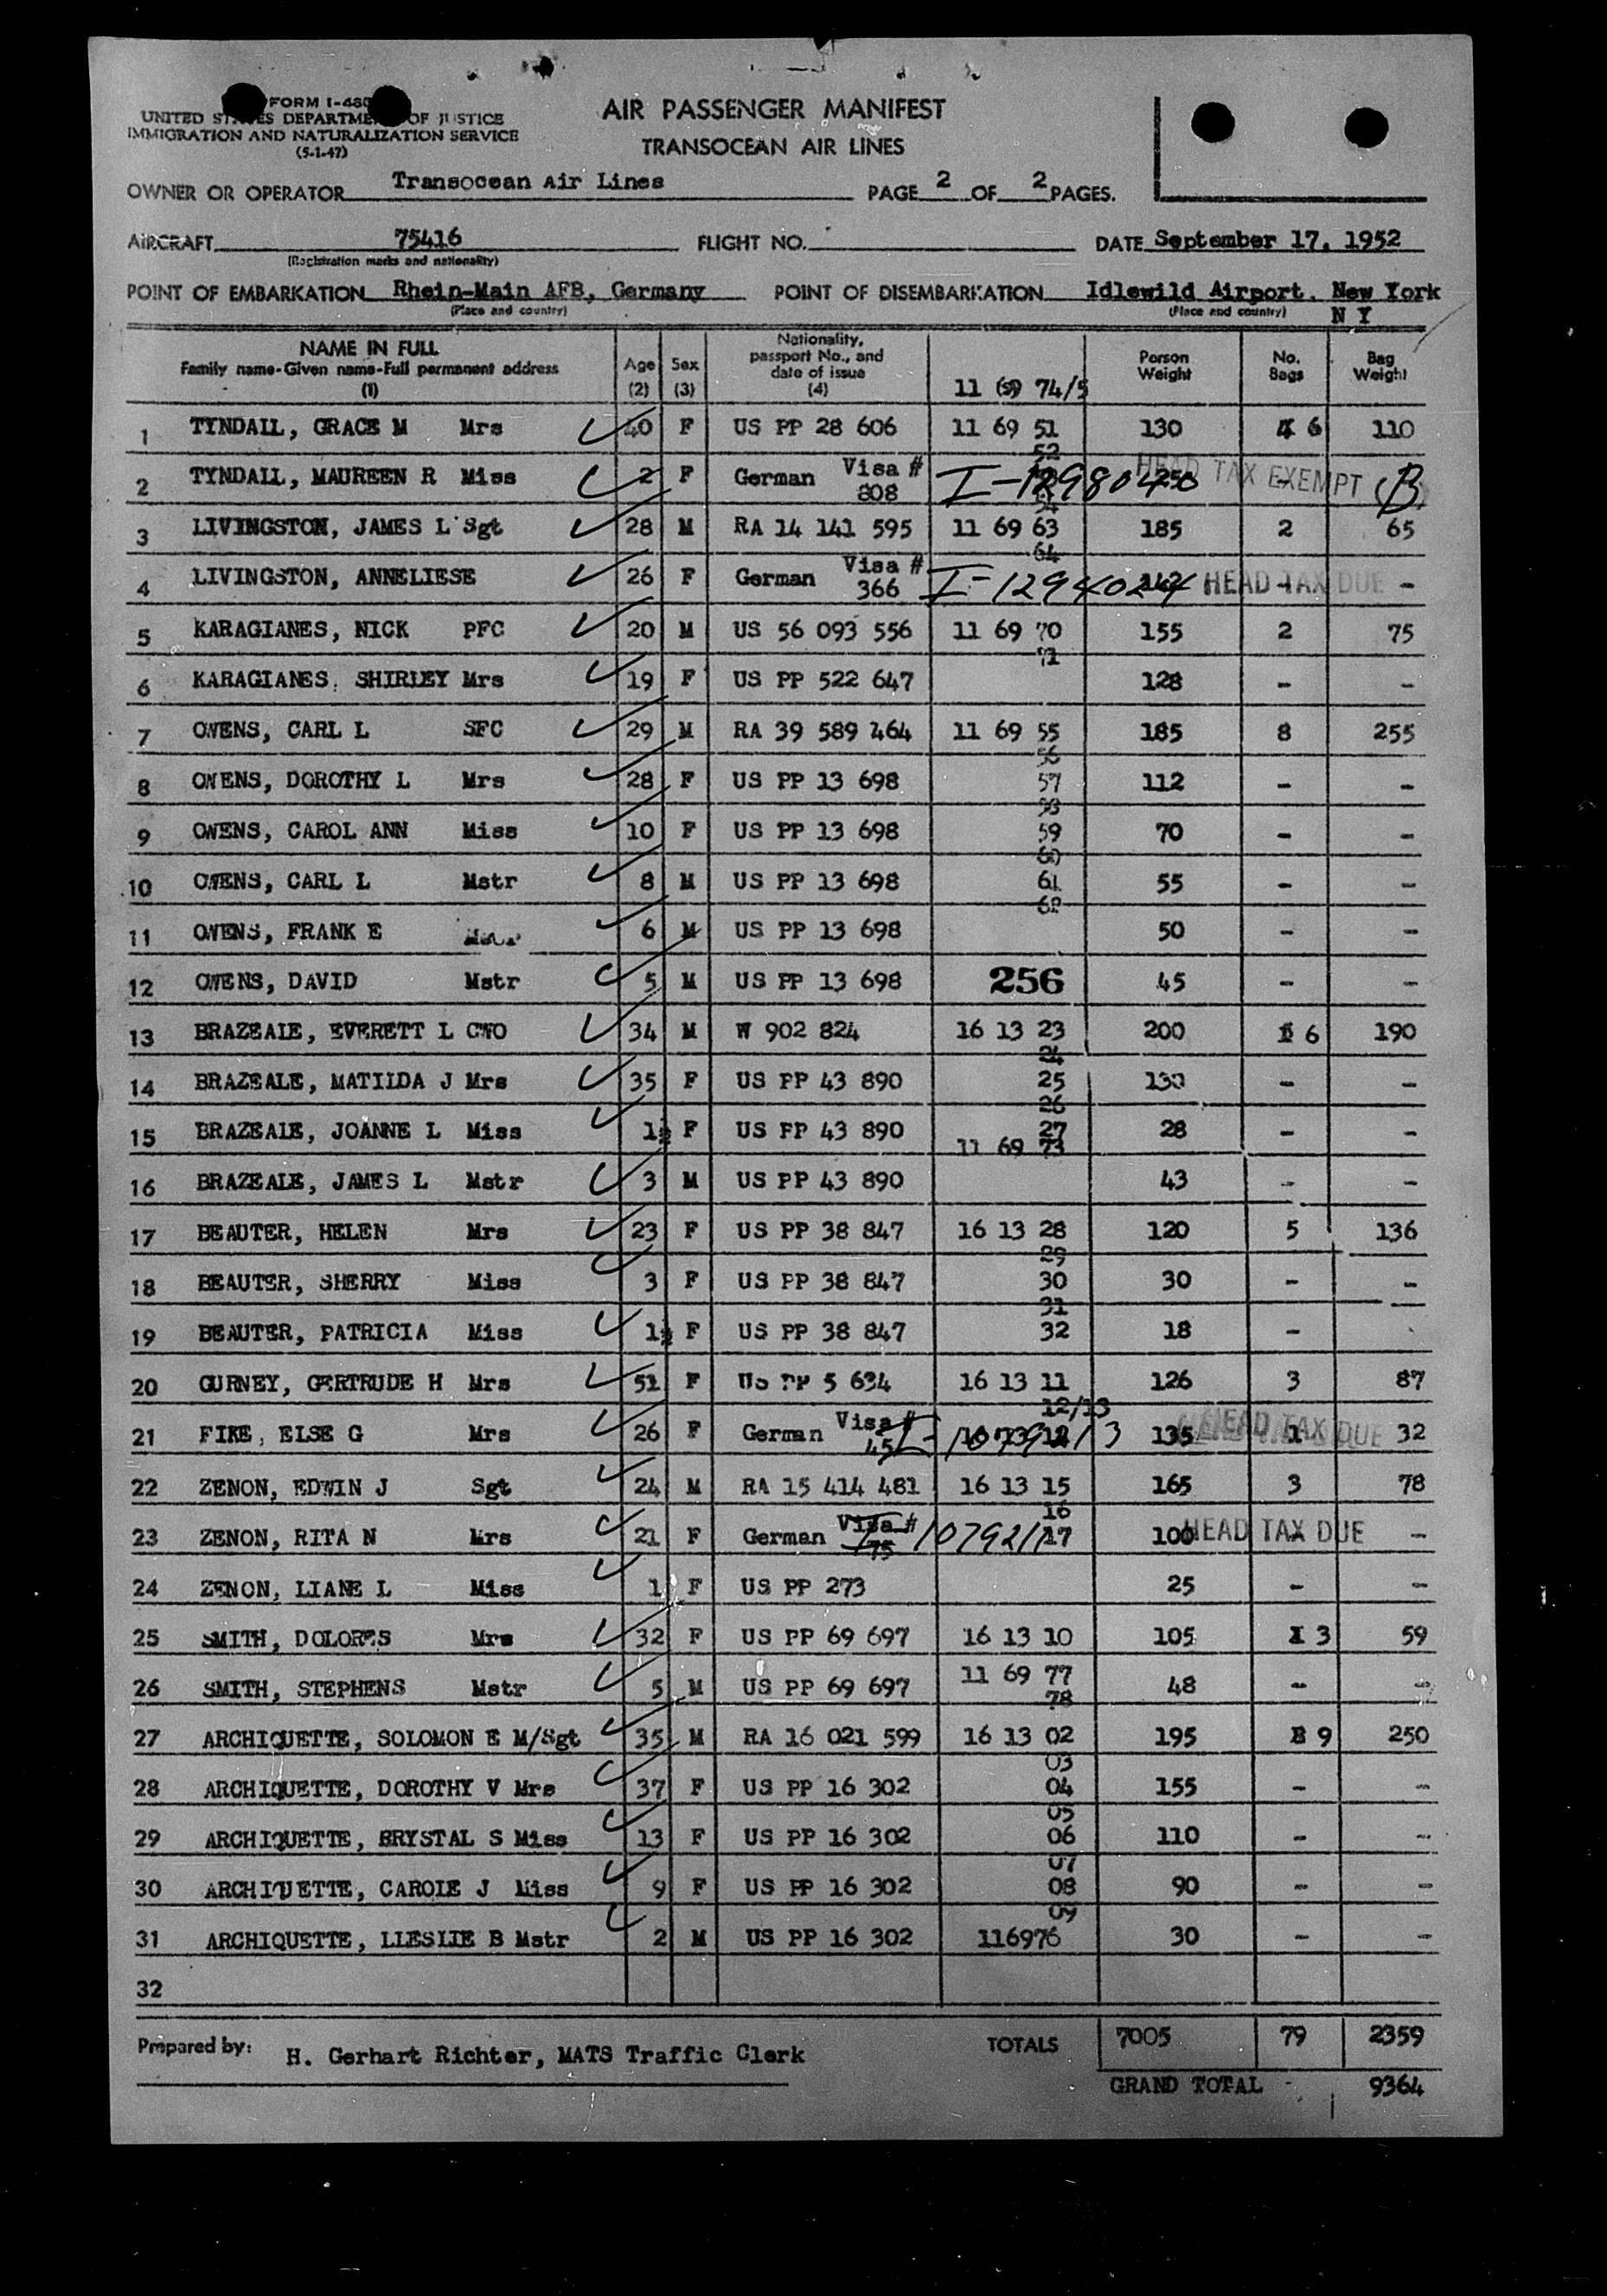 FORM I-480
UNITED STATES DEPARTMENT OF JUSTICE
IMMIGRATION AND NATURALIZATION SERVICE
(5-1-47)
AIR PASSENGER MANIFEST
TRANSOCEAN AIR LINES
OWNER OR OPERATOR Transocean Air Lines PAGE 2 OF 2 PAGES.
AIRCRAFT 75416 FLIGHT NO. DATE September 17, 1952
(Registration marks and nationality)
POINT OF EMBARKATION Rhein-Main AFB, Germany POINT OF DISEMBARKATION Idlewild Airport, New York
(Place and country) (Place and country) N Y
NAME IN FULL
Family name-Given name-Full permanent address
(1)
Age (2) Sex (3)
Nationality, passport No., and date of issue (4)
11 69 74/5
Person Weight No. Bags Bag Weight
1 TYNDALL, GRACE M Mrs 40 F US PP 28 606 11 69 51 130 6 110
52
2 TYNDALL, MAUREEN R Miss 2 F German Visa # 808 I-12980 HEAD TAX EXEMPT (B)
54
3 LIVINGSTON, JAMES L Sgt 28 M RA 14 141 595 11 69 63 185 2 65
64
4 LIVINGSTON, ANNELIESE 26 F German Visa # 366 I-1294024 HEAD TAX DUE -
5 KARAGIANES, NICK PFC 20 M US 56 093 556 11 69 70 155 2 75
71
6 KARAGIANES, SHIRLEY Mrs 19 F US PP 522 647 128 - -
7 OWENS, CARL L SFC 29 M RA 39 589 464 11 69 55 185 8 255
56
8 OWENS, DOROTHY L Mrs 28 F US PP 13 698 57 112 - -
58
9 OWENS, CAROL ANN Miss 10 F US PP 13 698 59 70 - -
60
10 OWENS, CARL L Mstr 8 M US PP 13 698 61 55 - -
62
11 OWENS, FRANK E 6 M US PP 13 698 50 - -
12 OWENS, DAVID Mstr 5 M US PP 13 698 256 45 - -
13 BRAZEALE, EVERETT L CWO 34 M W 902 824 16 13 23 200 6 190
24
14 BRAZEALE, MATILDA J Mrs 35 F US PP 43 890 25 130 - -
26
15 BRAZEALE, JOANNE L Miss 1½ F US PP 43 890 27 28 - -
11 69 73
16 BRAZEALE, JAMES L Mstr 3 M US PP 43 890 43 - -
17 BEAUTER, HELEN Mrs 23 F US PP 38 847 16 13 28 120 5 136
29
18 BEAUTER, SHERRY Miss 3 F US PP 38 847 30 30 - -
31
19 BEAUTER, PATRICIA Miss 1½ F US PP 38 847 32 18 -
20 GURNEY, GERTRUDE H Mrs 51 F US PP 5 634 16 13 11 126 3 87
12/13
21 FIKE, ELSE G Mrs 26 F German Visa # 45 135 1 HEAD TAX DUE 32
22 ZENON, EDWIN J Sgt 24 M RA 15 414 481 16 13 15 165 3 78
16
23 ZENON, RITA N Mrs 21 F German Visa # 75 17 100 HEAD TAX DUE -
24 ZENON, LIANE L Miss 1 F US PP 273 25 - -
25 SMITH, DOLORES Mrs 32 F US PP 69 697 16 13 10 105 3 59
26 SMITH, STEPHENS Mstr 5 M US PP 69 697 11 69 77 48 - -
78
27 ARCHIQUETTE, SOLOMON E M/Sgt 35 M RA 16 021 599 16 13 02 195 9 250
03
28 ARCHIQUETTE, DOROTHY V Mrs 37 F US PP 16 302 04 155 - -
05
29 ARCHIQUETTE, BRYSTAL S Miss 13 F US PP 16 302 06 110 - -
07
30 ARCHIQUETTE, CAROLE J Miss 9 F US PP 16 302 08 90 - -
09
31 ARCHIQUETTE, LLESLIE B Mstr 2 M US PP 16 302 116976 30 - -
32
Prepared by: H. Gerhart Richter, MATS Traffic Clerk TOTALS 7005 79 2359
GRAND TOTAL - 9364